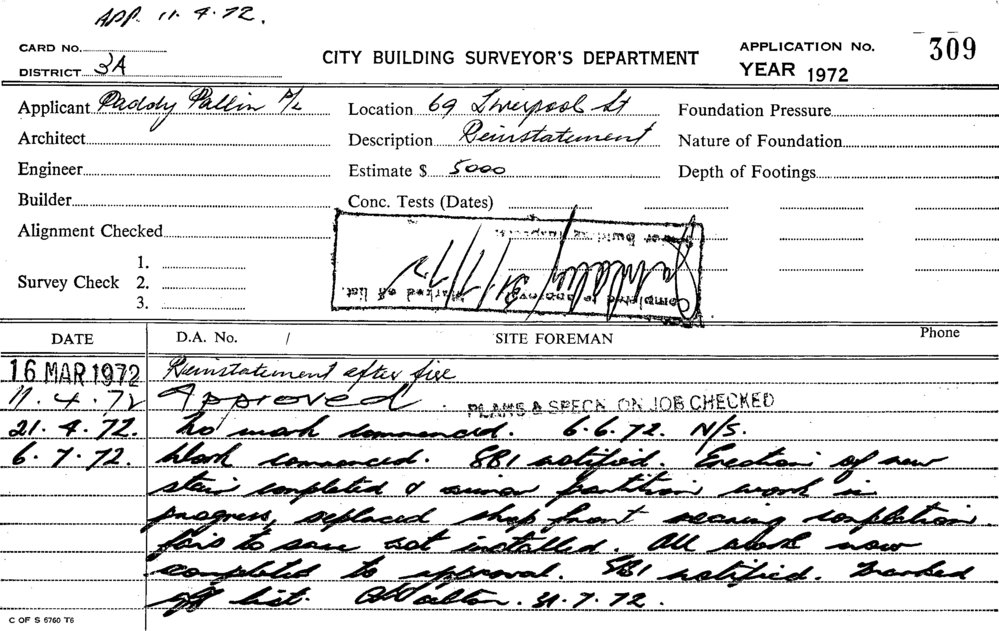 APP. 11.4.72.
CARD NO.
DISTRICT 3A
CITY BUILDING SURVEYOR'S DEPARTMENT
APPLICATION No. 309
YEAR 1972
Applicant Paddy Pallin P/L
Location 69 Liverpool St
Foundation Pressure
Architect
Description Reinstatement
Nature of Foundation
Engineer
Estimate $ 5000
Depth of Footings
Builder
Conc. Tests (Dates)
Alignment Checked
Survey Check 1.
2.
3.
Completed to approval
Marked off list.
31/7/72
Building Inspector
DATE D.A. No. / SITE FOREMAN Phone
16 MAR 1972 Reinstatement after fire
11.4.72 Approved. PLANS & SPECN ON JOB CHECKED
21.4.72. No work commenced. 6.6.72. N/S.
6.7.72. Work commenced. SBI notified. Erection of new
stair completed & minor partition work in
progress, replaced shop front nearing completion
to same not installed. All work now
completed to approval. SBI notified. Marked
off list. 31.7.72.
C OF S 6760 T6